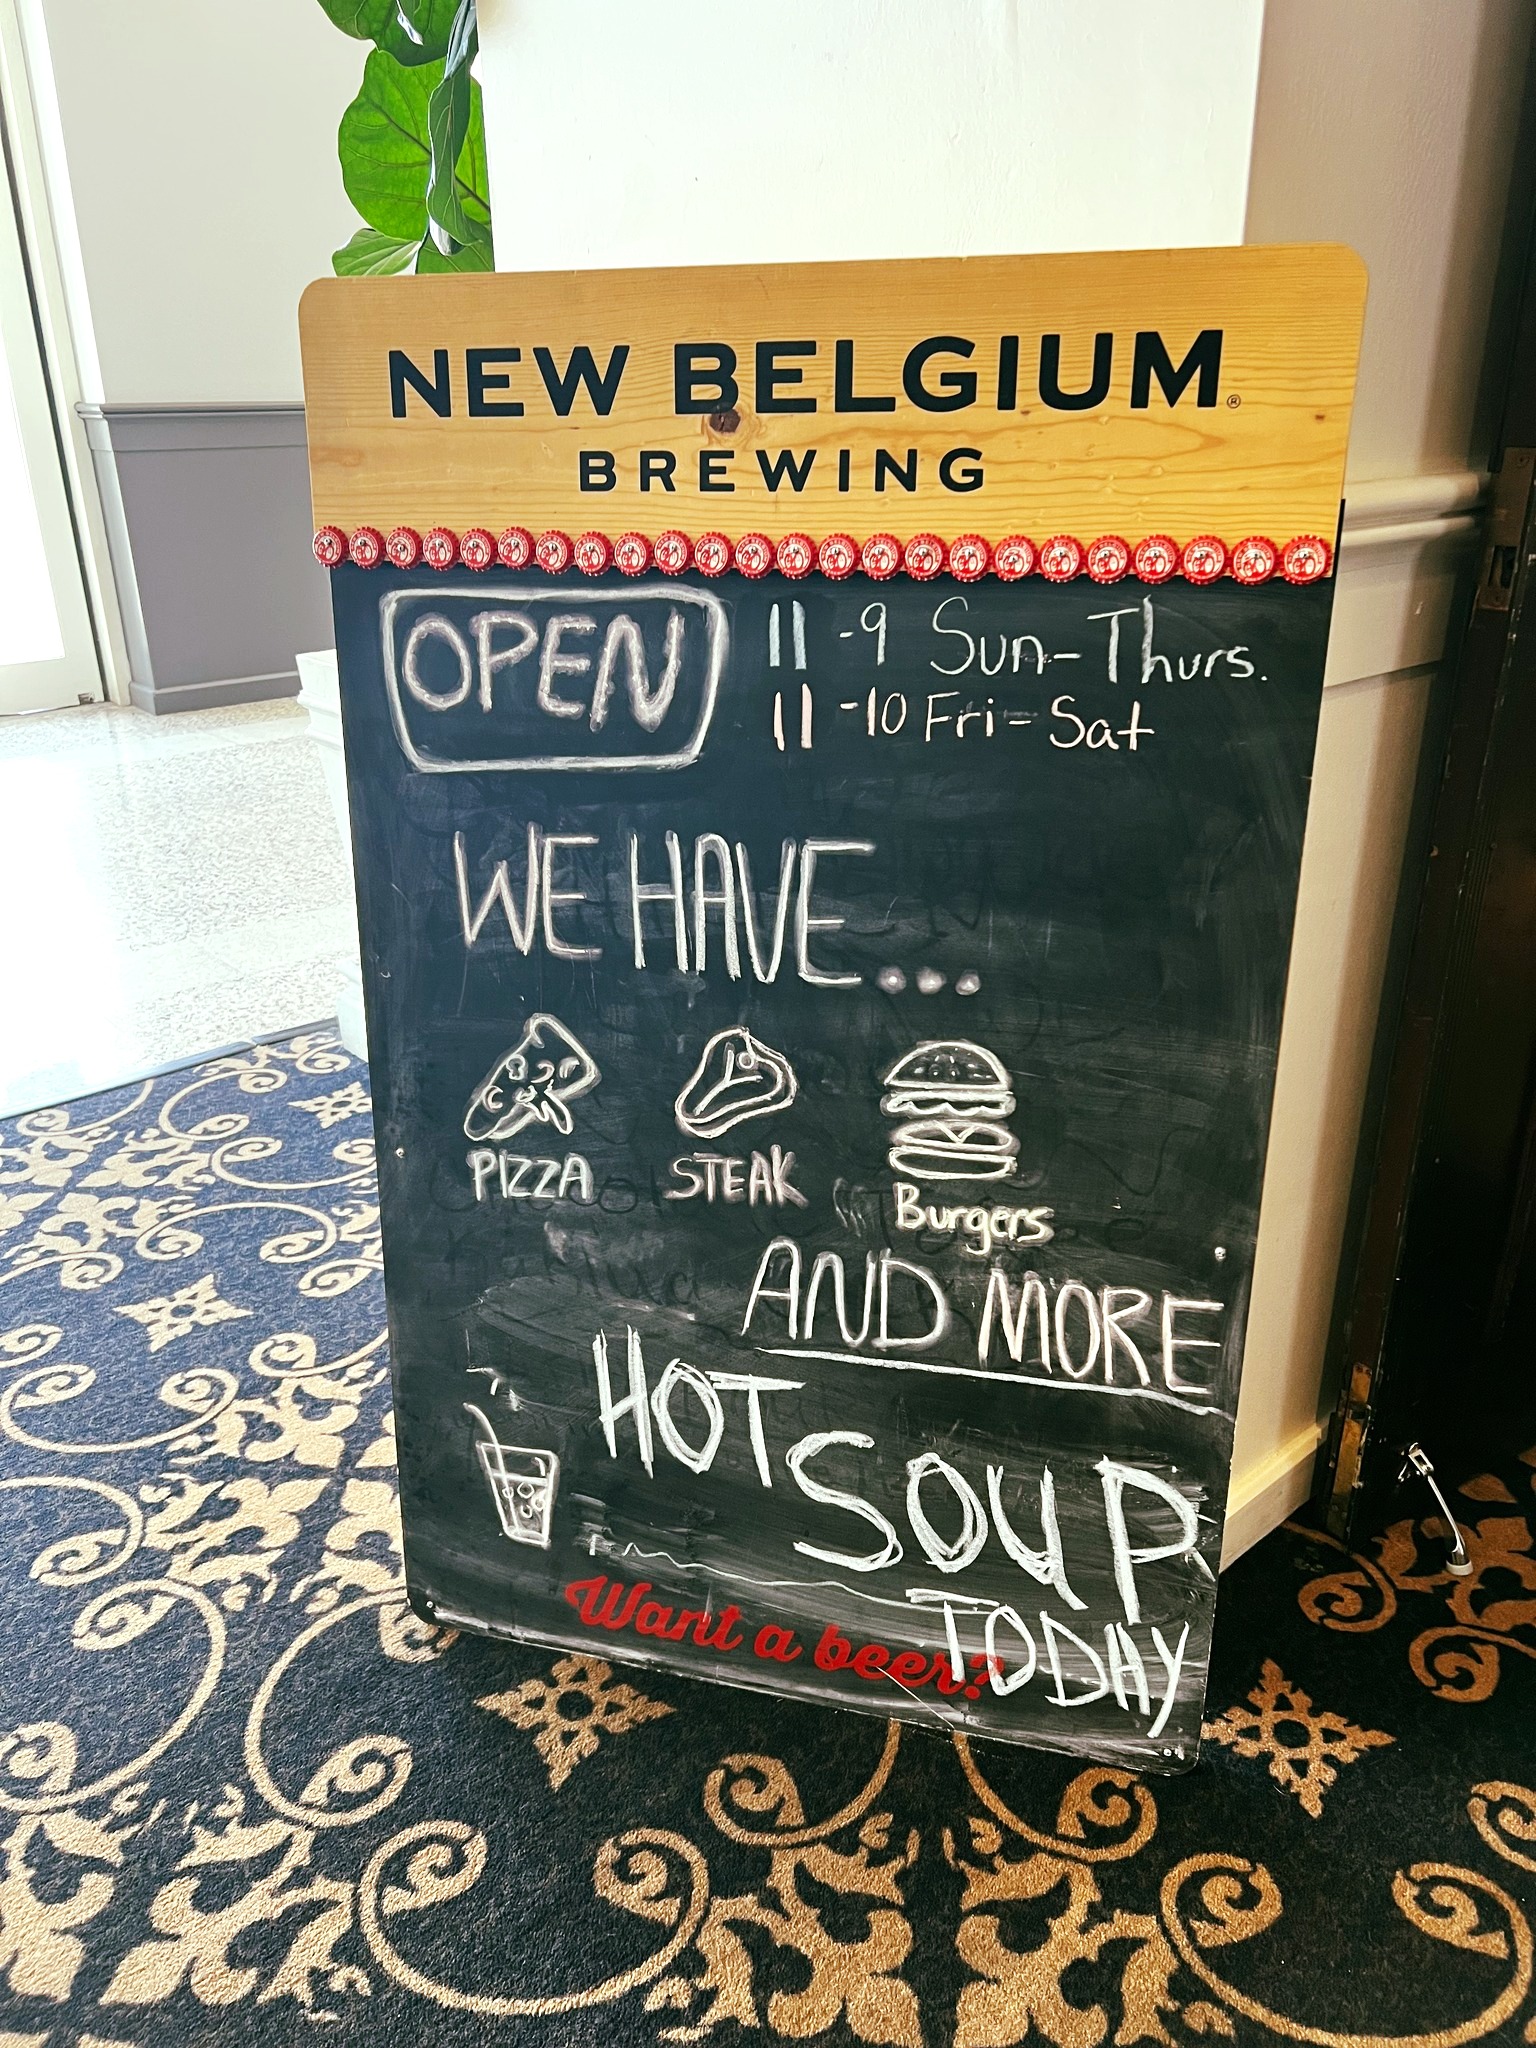 NEW BELGIUM®
BREWING
OPEN
11-9 Sun-Thurs.
11-10 Fri-Sat
WE HAVE...
PIZZA
STEAK
Burgers
AND MORE
HOT
SOUP
TODAY
Want a beer?